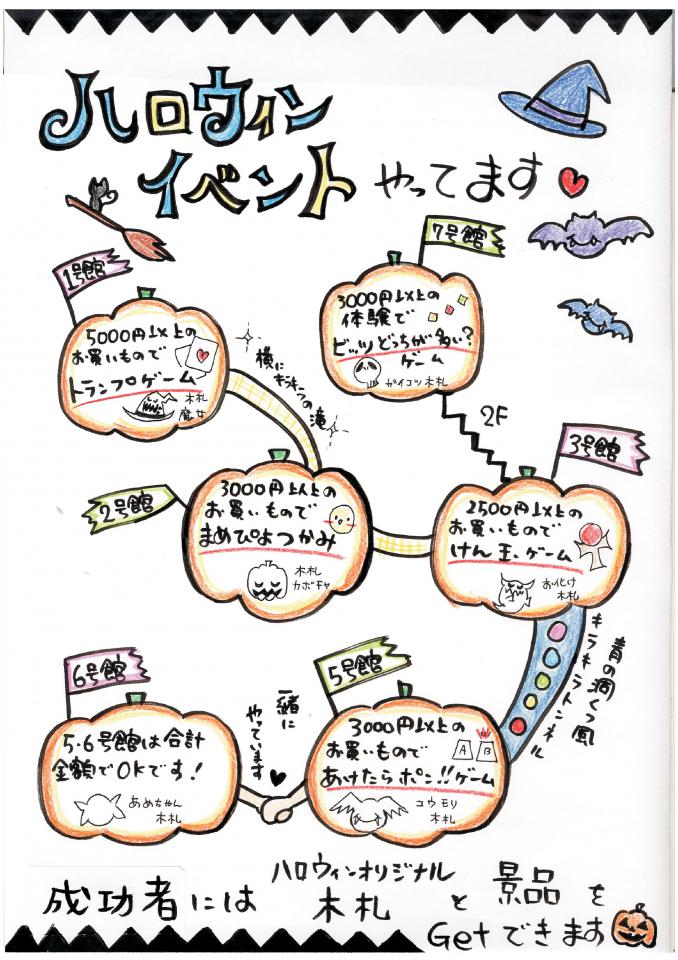 ハロウィン
イベント やってます
1号館
5000円以上の
お買いもので
トランプゲーム
木札
魔女
7号館
3000円以上の
体験で
ビッツどっちが多い?
ゲーム
ガイコツ木札
横にキラキラの滝
2F
2号館
3000円以上の
お買いもので
まめぴよつかみ
木札
カボチャ
3号館
2500円以上の
お買いもので
けん玉ゲーム
お化け
木札
青の洞くつ風
キラキラトンネル
6号館
5・6号館は合計
金額でOKです!
あめちゃん
木札
一緒に
やっています
5号館
3000円以上の
お買いもので
A B
あけたらポン!!ゲーム
コウモリ
木札
成功者には ハロウィンオリジナル
木札 と 景品 を
Getできます